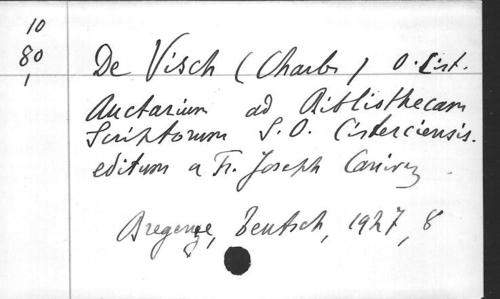 10
80
1
De Visch (Charles) O. Cist.
Auctarium ad Bibliothecam
Scriptorum S. O. Cisterciensis.
editum a Fr. Joseph Canivez
Bregenz, Teutsch, 1927, 8